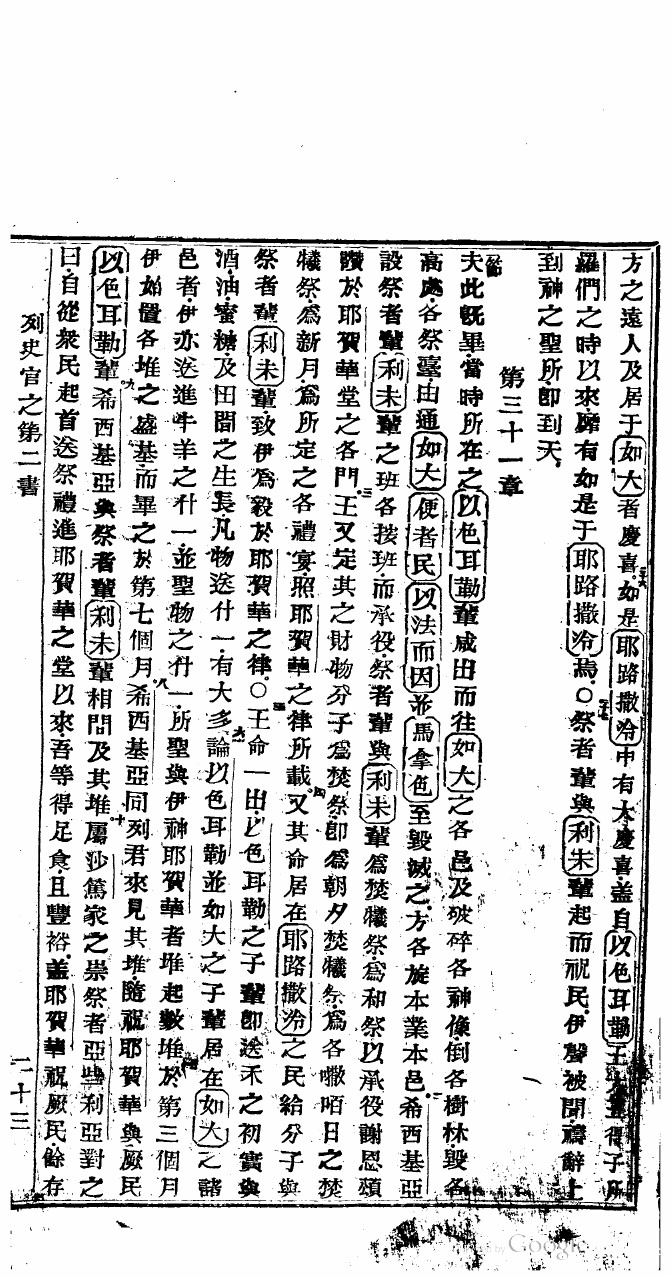 方之遠人及居于如大者慶喜。二六如是耶路撒冷中有大慶喜蓋自以色耳勒王得子所
羅們之時以來靡有如是于耶路撒冷焉。○二七祭者輩與利未輩起而祝民伊聲被聞禱辭上
到神之聖所即到天。
第三十一章
一節夫此既畢當時所在之以色耳勒輩咸出而往如大之各邑及破碎各神像倒各樹林毀各
高處各祭臺由通如大便者民以法而因並馬拿色至毀滅之方各旋本業本邑。二希西基亞
設祭者輩利未輩之班各按班而承役祭者輩與利未輩為焚犧祭為和祭以承役謝恩頌
讚於耶賀華堂之各門。三王又定其之財物分子為焚祭即為朝夕焚犧祭為各嗽咟日之焚
犧祭為新月為所定之各禮宴照耶賀華之律所載。四又其命居在耶路撒冷之民給分子與
祭者輩利未輩致伊為毅於耶賀華之律。○五王命一出以色耳勒之子輩即送禾之初實與
酒油蜜糖及田間之生長凡物送什一有大多六論以色耳勒並如大之子輩居在如大之諸
邑者伊亦送進牛羊之什一並聖物之什一所聖與伊神耶賀華者堆起數堆七於第三個月
伊始置各堆之盛基而畢之於第七個月八希西基亞同列君來見其堆隨祝耶賀華與厥民
以色耳勒輩九希西基亞與祭者輩利未輩相問及其堆十屬沙篤家之崇祭者亞些利亞對之
曰自從衆民起首送祭禮進耶賀華之堂以來吾等得足食且豐裕蓋耶賀華祝厥民餘存
列史官之第二書
二十三
Google